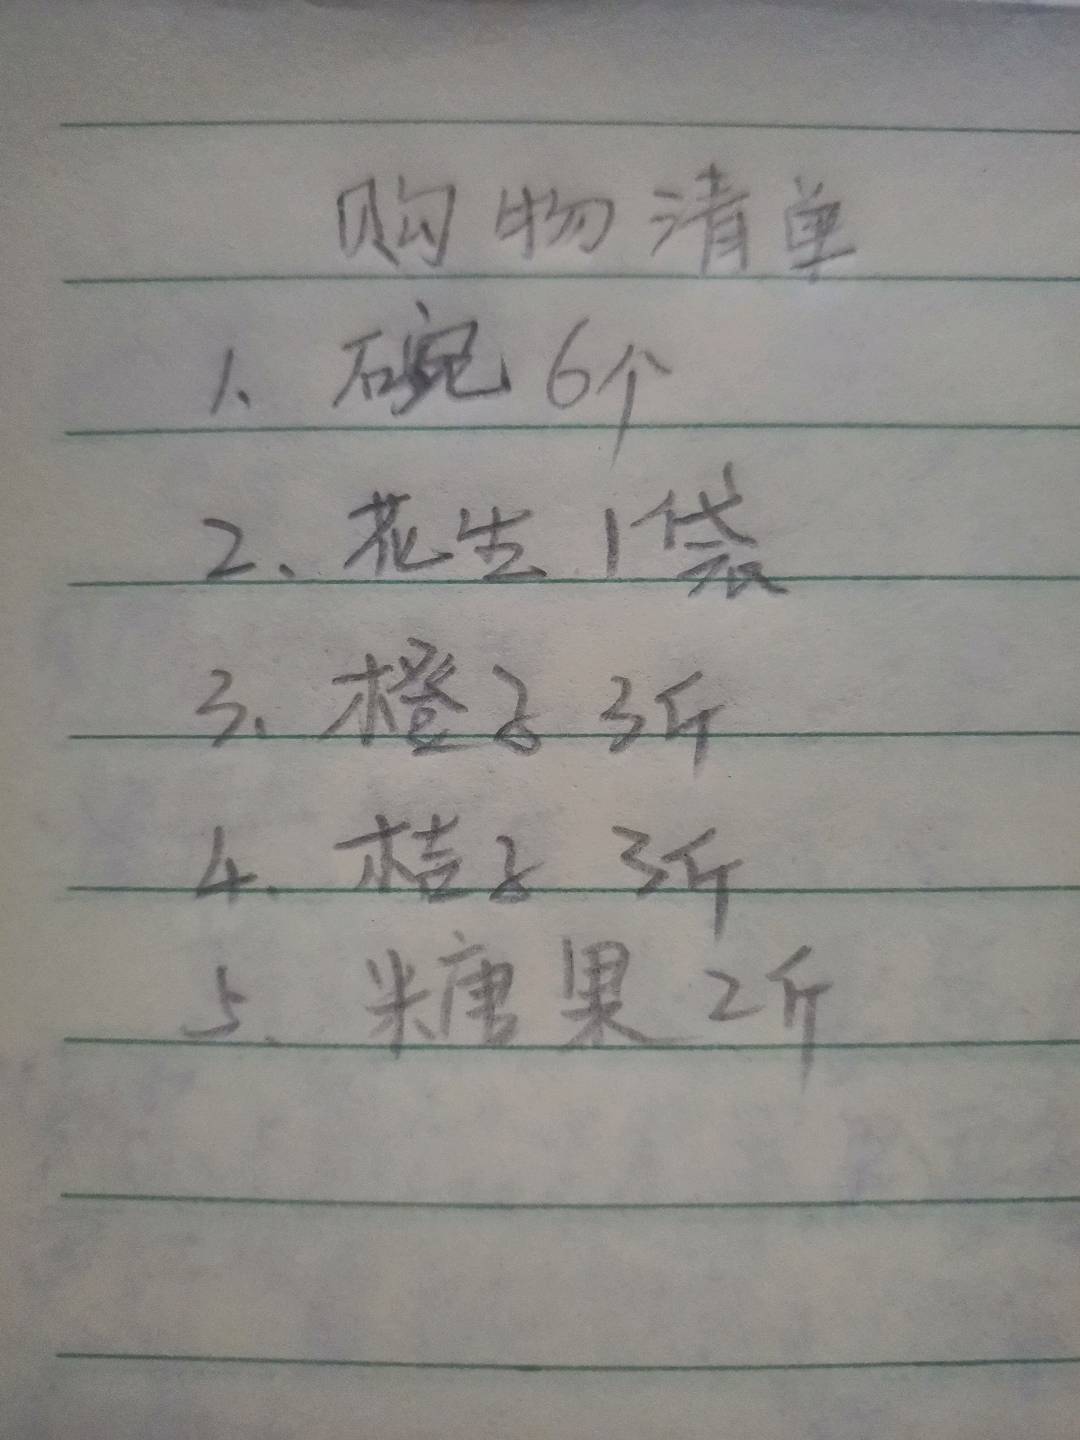 购物清单
1、碗6个
2、花生1袋
3、橙子3斤
4、桔子3斤
5、糖果2斤